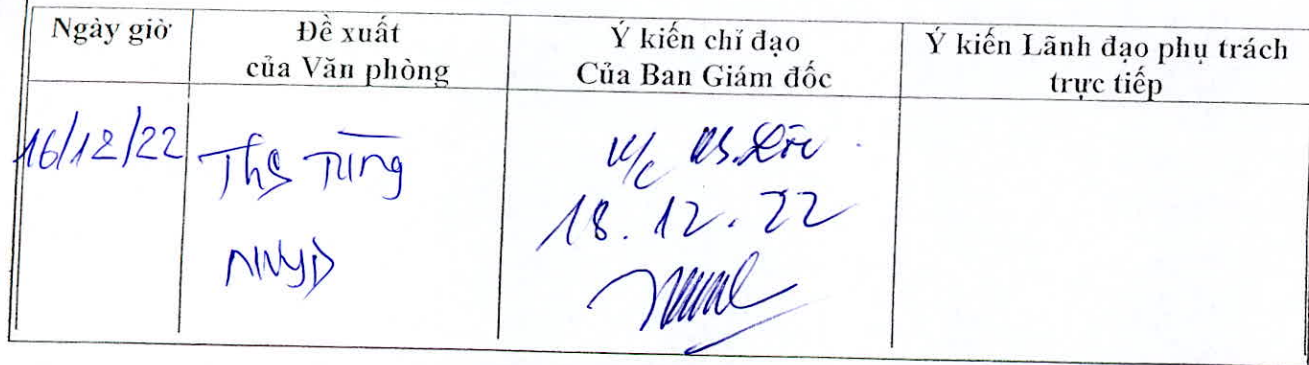 Ngày giờ
Đề xuất
của Văn phòng
Ý kiến chỉ đạo
Của Ban Giám đốc
Ý kiến Lãnh đạo phụ trách
trực tiếp
16/12/22
Ths Tùng
18.12.22